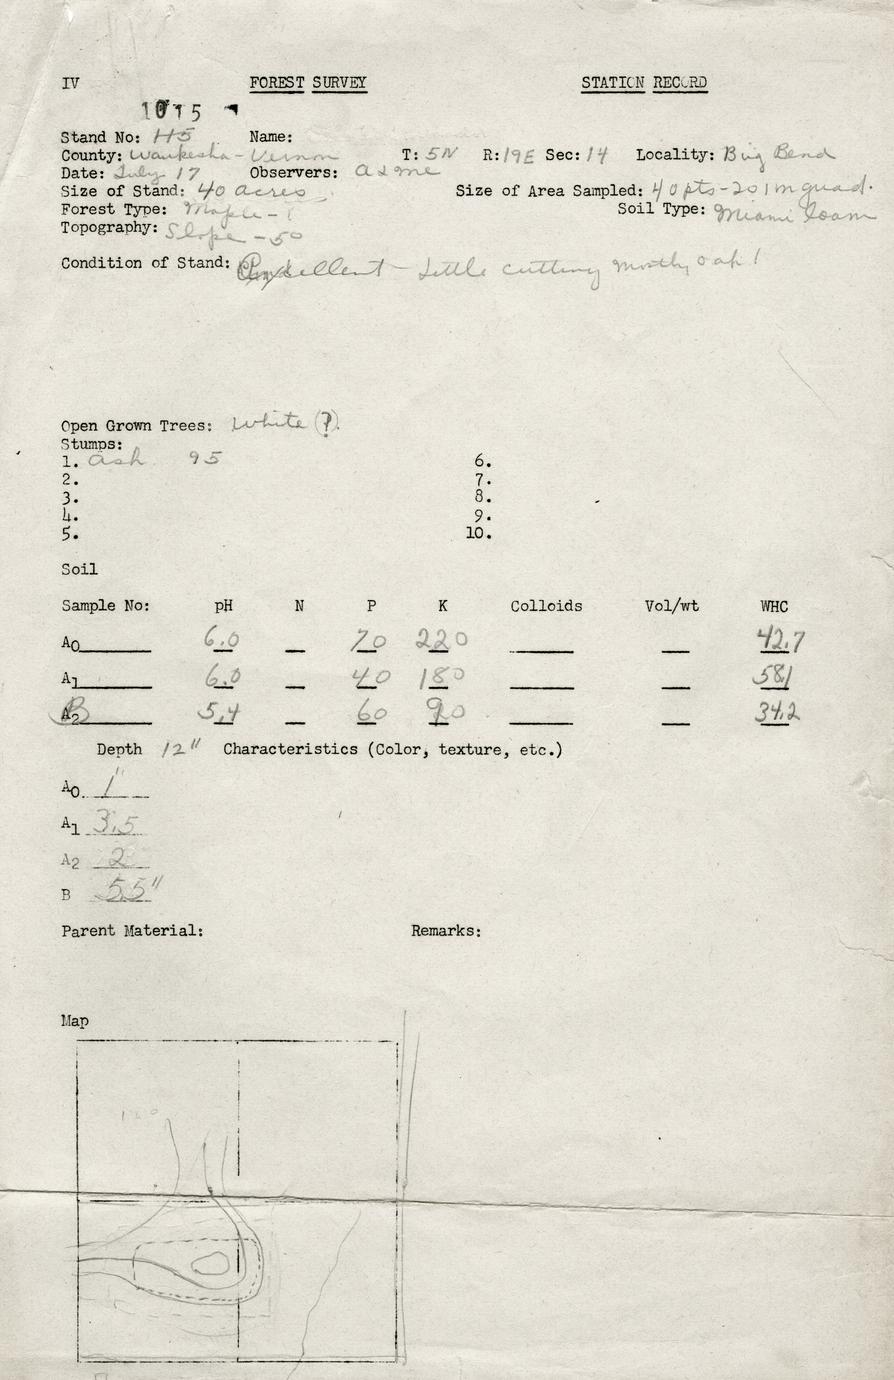 IV FOREST SURVEY STATION RECORD
1015
Stand No: H5 Name:
County: Waukesha - Vernon T: 5N R: 19E Sec: 14 Locality: Big Bend
Date: July 17 Observers:
Size of Stand: 40 acres Size of Area Sampled: 40 pts - 20 1m quad.
Forest Type: Maple - Soil Type: Miami loam
Topography: Slope - 50
Condition of Stand: Excellent - Little cutting mostly oak!
Open Grown Trees: White (?)
Stumps:
1. Ash 95 6.
2. 7.
3. 8.
4. 9.
5. 10.
Soil
Sample No: pH N P K Colloids Vol/wt WHC
A0 6.0 70 220 42.7
A1 6.0 40 180 58.1
B 5.4 60 90 34.2
Depth 12" Characteristics (Color, texture, etc.)
A0 1"
A1 3.5
A2 2
B 5.5"
Parent Material: Remarks:
Map